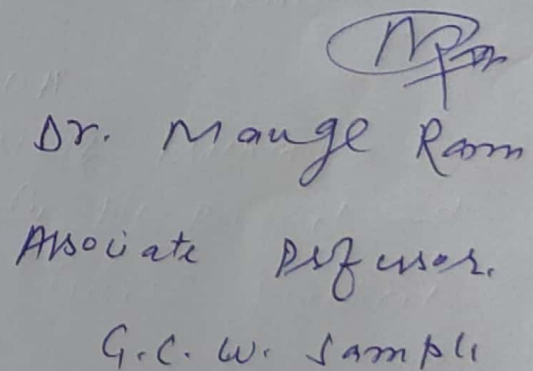 Dr. Mange Ram
Associate Professor.
G.C.W. Sampla